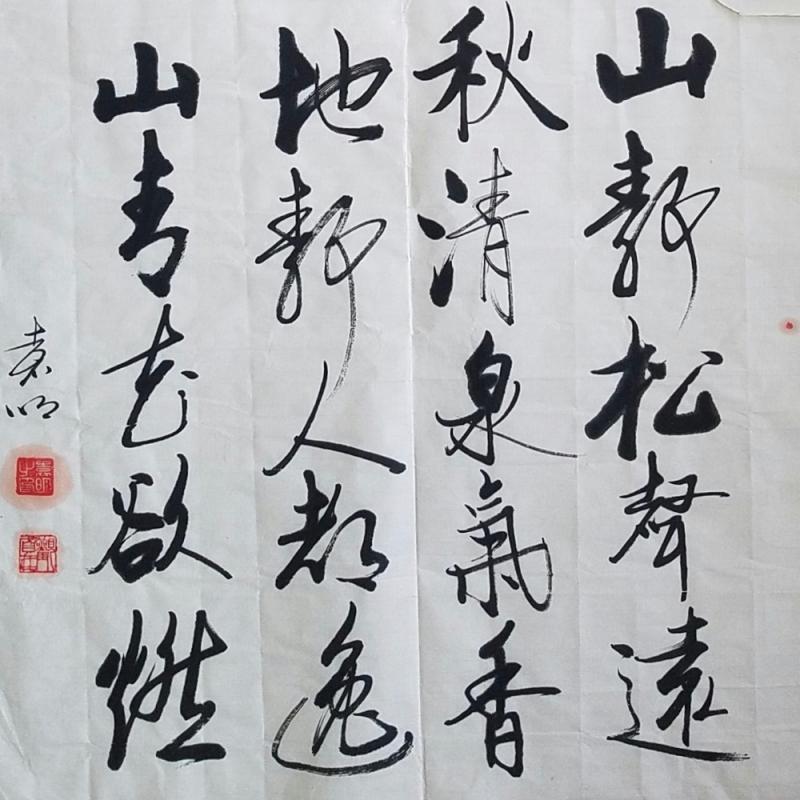 山靜松聲遠
秋清泉氣香
地靜人都逸
山青花欲燃
袁明